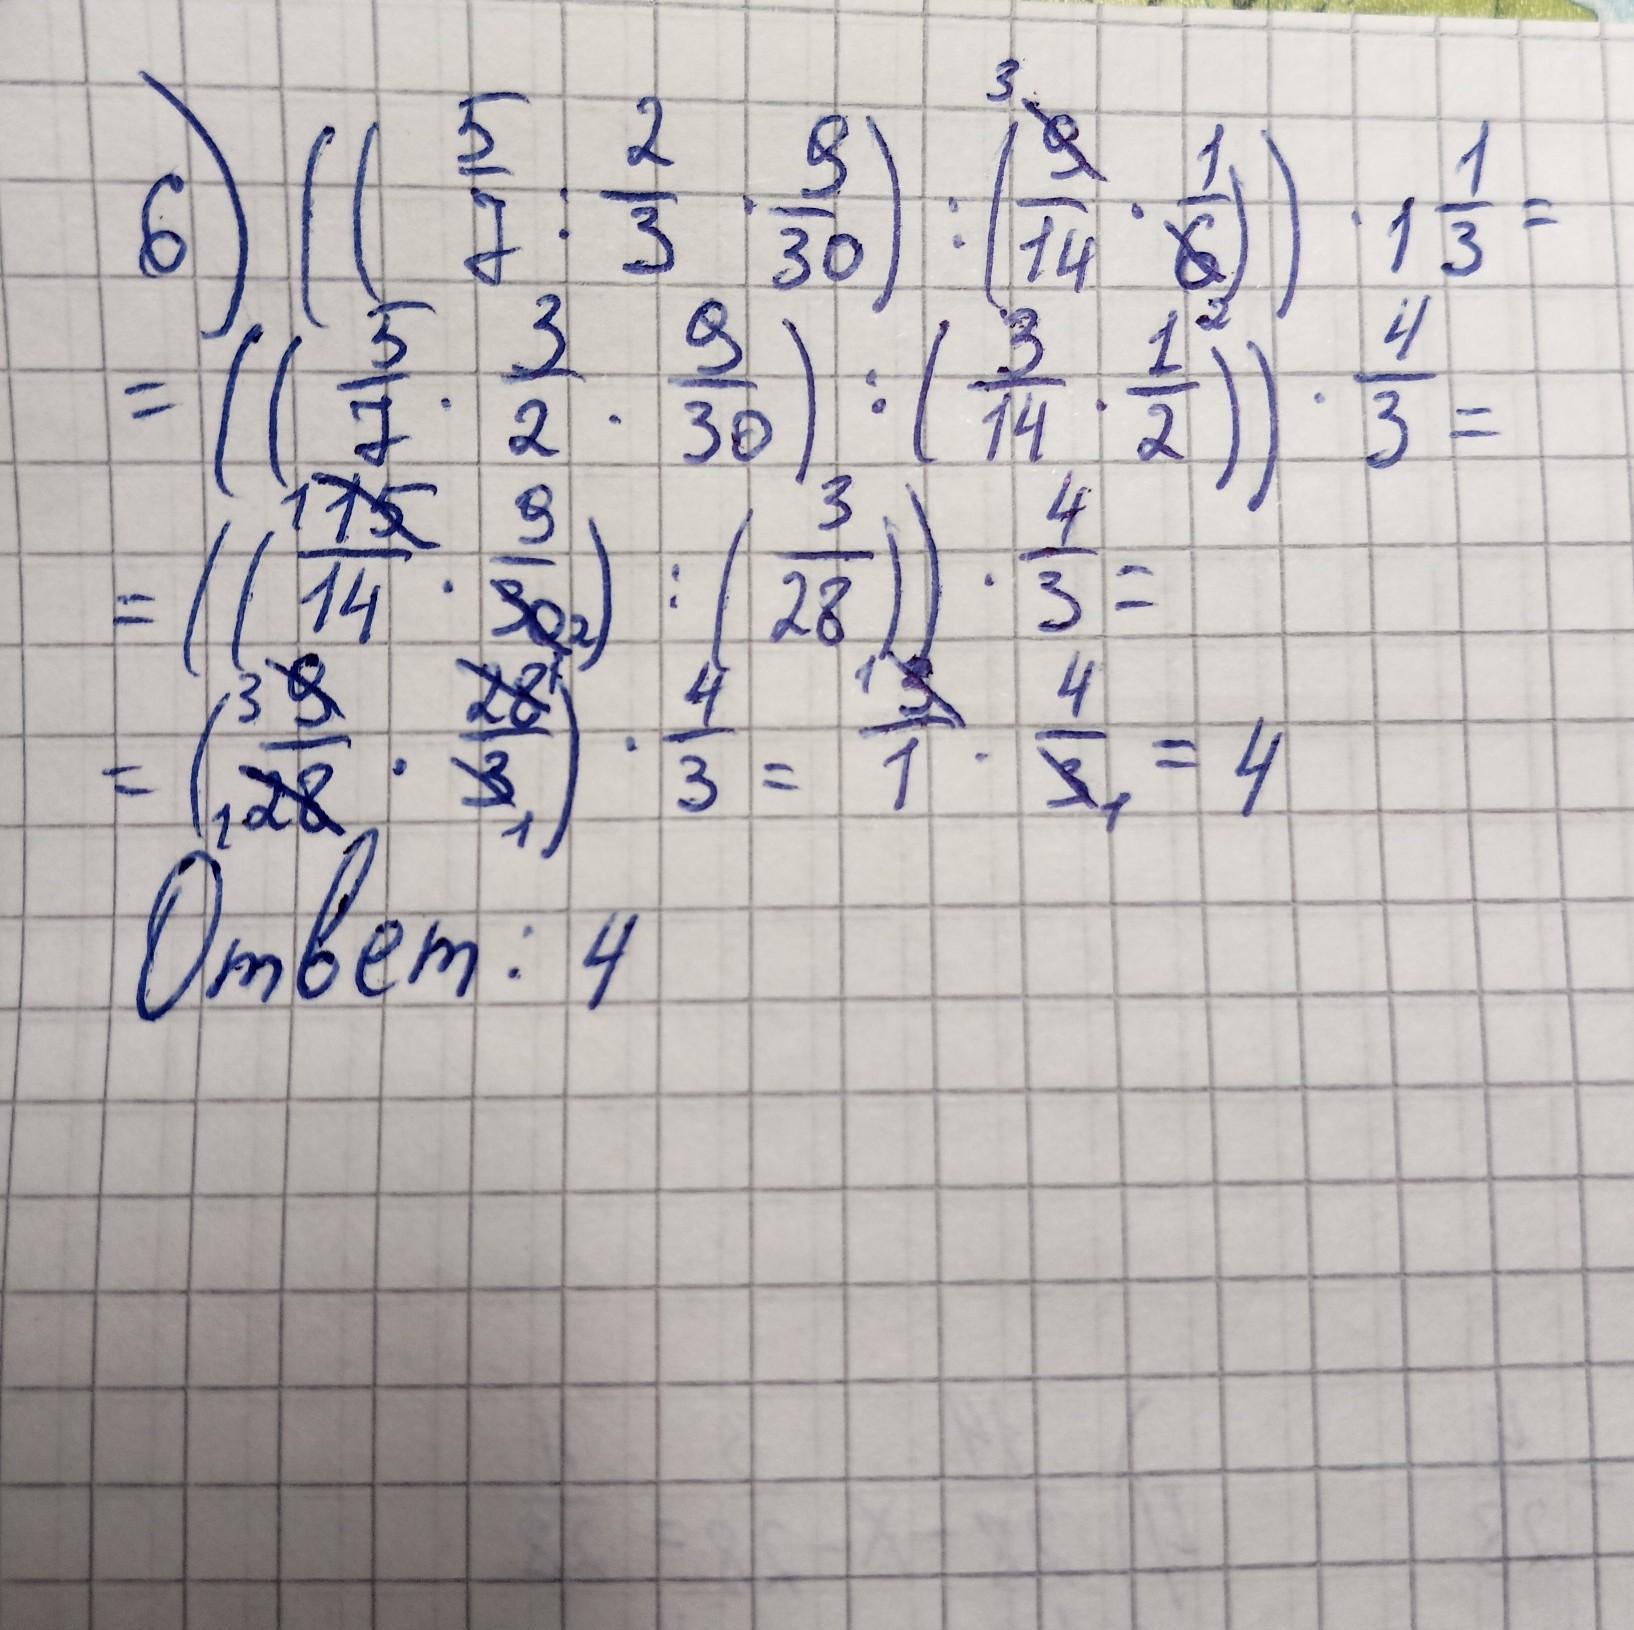 б) ((5/7 : 2/3 · 9/30) : (9/14 · 1/6)) · 1 1/3 =
= ((5/7 · 3/2 · 9/30) : (3/14 · 1/2)) · 4/3 =
= ((15/14 · 9/30) : (3/28)) · 4/3 =
= (9/28 · 28/3) · 4/3 = 3/1 · 4/3 = 4
Ответ: 4